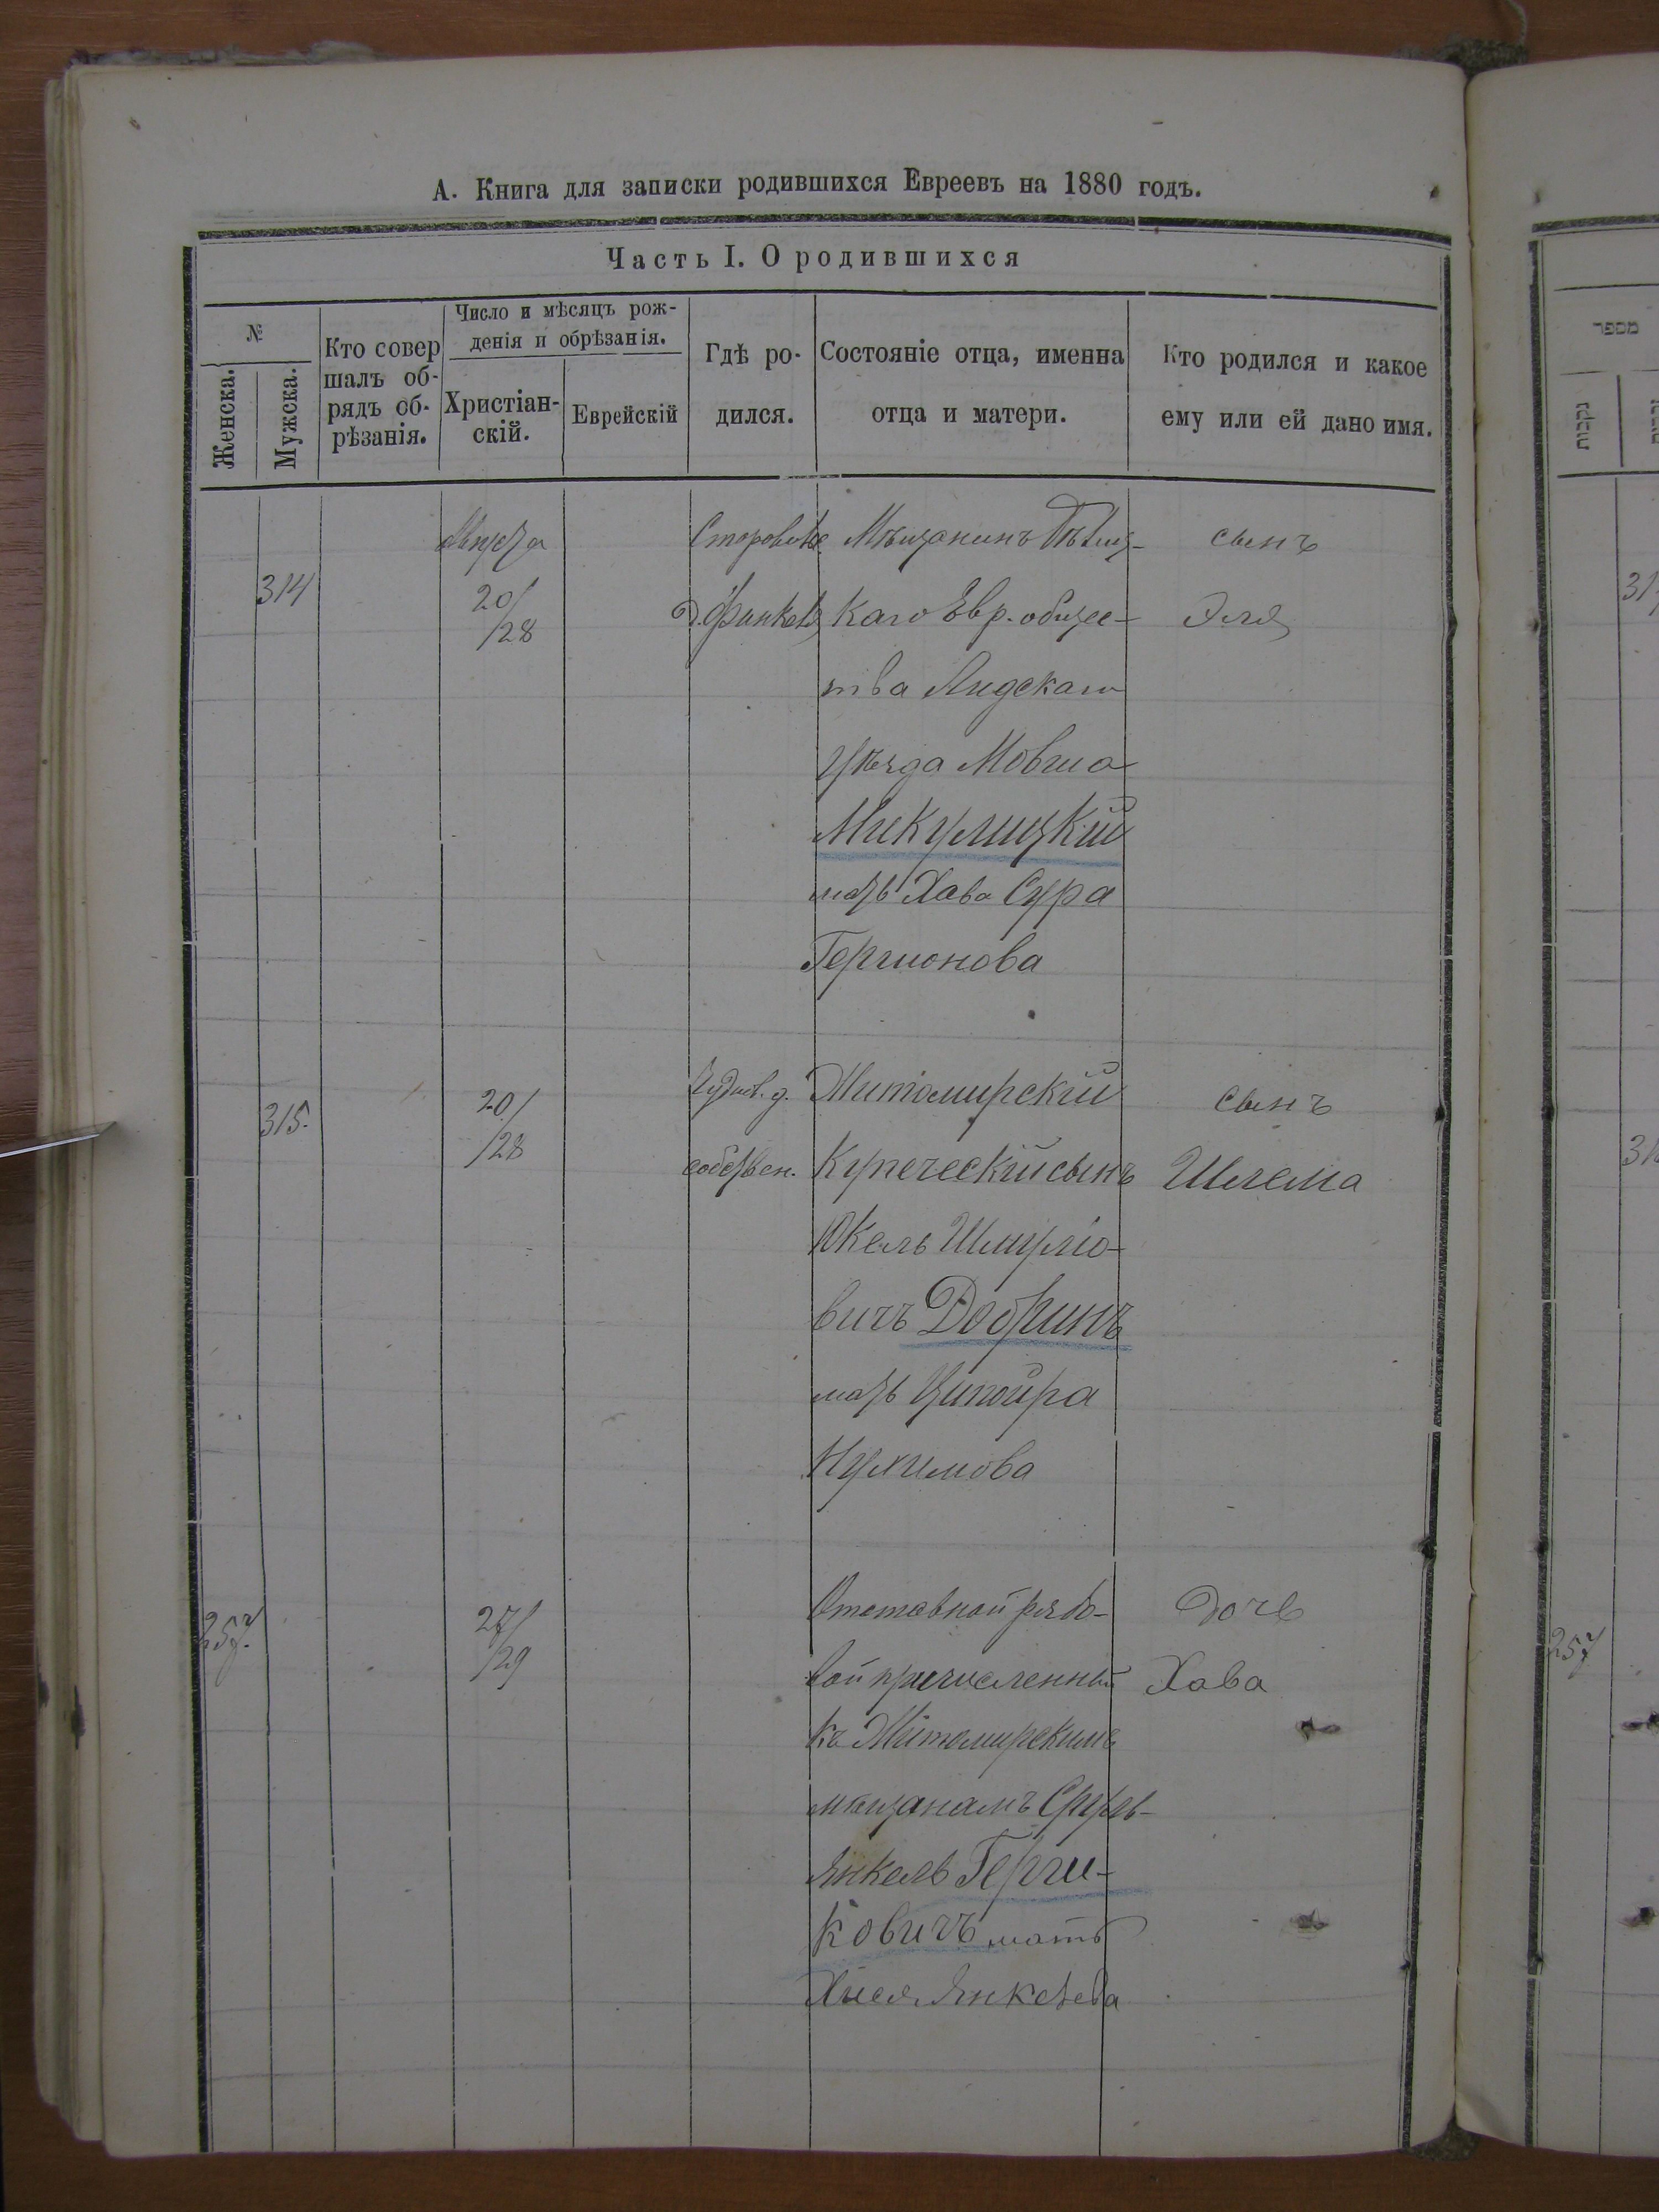 А. Книга для записки родившихся Евреевъ на 1880 годъ.
Часть I. О родившихся
№
Женска.
Мужска.
Кто совер
шалъ об-
рядъ об-
рѣзанія.
Число и мѣсяцъ рож-
денія и обрѣзанія.
Христіан-
скій.
Еврейскій
Гдѣ ро-
дился.
Состояніе отца, именна
отца и матери.
Кто родился и какое
ему или ей дано имя.
314
Августа
20/
/28
Мѣщанинъ
каго Евр. общес-
тва Лидскаго
уѣзда Мовша
Микулицкій
мать Хава Сура
Гершонова
сынъ
Эля
315.
20/
/28
Чуднов. д.
собствен.
Житомирскій
Купеческій сынъ
Юкель Шмуліо-
вичъ Добринъ
мать Ципойра
Нухимова
сынъ
Шлема
257.
27/
/29
Отставной рядо-
вой причисленный
къ Житомирскимъ
мѣщанамъ Сруль-
Янкель Герши-
ковичъ мать
Хися Янкелева
дочь
Хава
מספר
נקבות
257